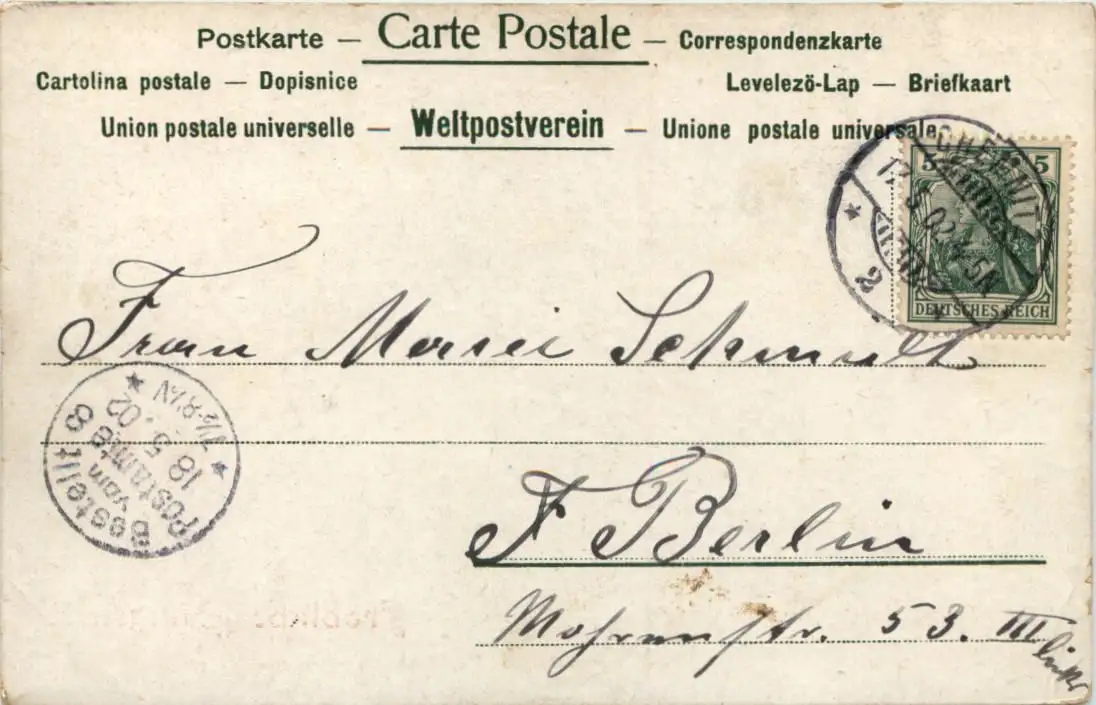 Postkarte — Carte Postale — Correspondenzkarte
Cartolina postale — Dopisnice Levelezö-Lap — Briefkaart
Union postale universelle — Weltpostverein — Unione postale universale
CHEMNITZ
17.5.02. 4-5N
2
5 5
DEUTSCHES REICH
Frau Marie Schmidt
Bestellt
vom
Postamte 8
18.5.02
7½-8¼V
F Berlin
Mohrenstr. 53. III
links